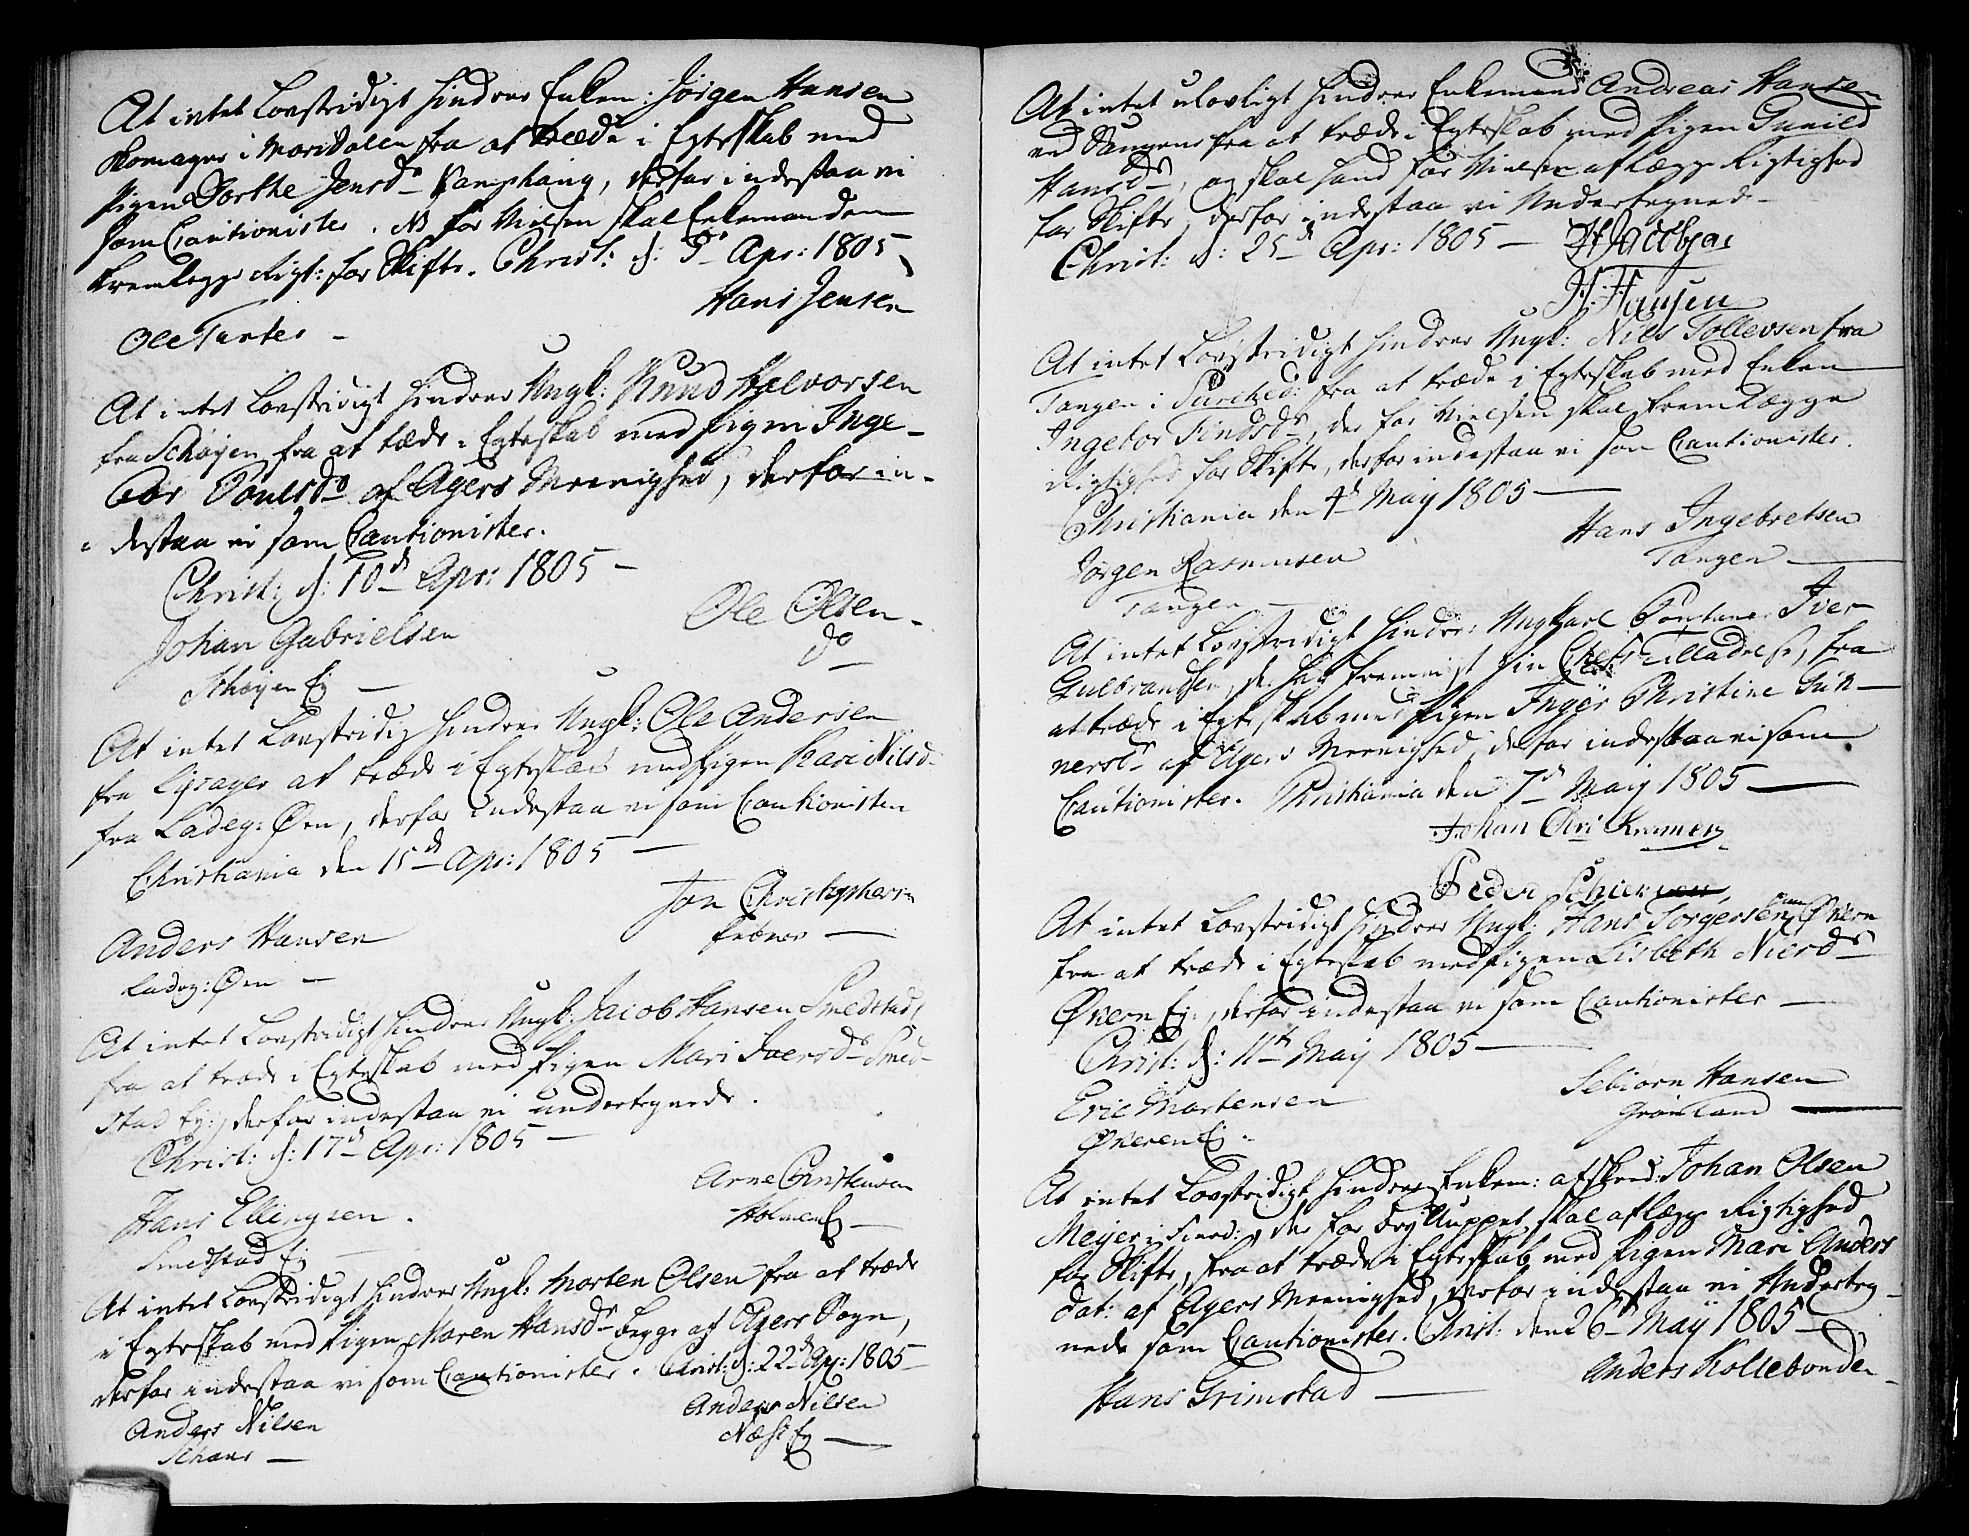 At intet Lovstridigt hindrer Enkem: Jörgen Hansen
Skomager i Maridalen fra at træde i Egteskab med
Pigen Dorthe Jensd: Kamphaug, derfor indestaa vi
som Cautionister. NB for Skifte skal Enkemanden
fremlegge Rigt: for Skifte. Christ: d: 5 Apr: 1805
Hans Jensen
Ole
At intet Lovstridigt hindrer Ungk: Knud Halvorsen
fra Schøyen fra at tæde i Egteskab med Pigen Inge-
bor Poulsd: af Agers Meenighed, derfor in-
destaa vi som Cautionister.
Christ: d: 10d Apr: 1805
Johan Gabrielsen
Schøyen Ej
Ole Olsen
do
At intet Lovstridig hindrer Ungk: Ole Andersen
fra at træde i Egteskab med Pigen Kari Nilsd:
fra Ladeg: Øen, derfor indestaa vi som Cautionister
Christiania den 15d Apr: 1805
Jon Christophers:
Anders Hansen
Ladeg: Øen
At intet Lovstridigt hindrer Ungk: Jacob Hansen Smedstad,
fra at træde i Egteskab med Pigen Mari Iversd: Smed-
stad Ej:, derfor indestaa vi undertegnede.
Christ: d: 17d Apr: 1805
Arne Christensen
Holmen Ej
Hans Ellingsen.
Smedstad Ej
At intet Lovstridigt hindrer Ungk: Morten Olsen fra at træde
i Egteskab med Pigen Maren Hansd: begge af Agers Sogn,
derfor indestaa vi som Cautionister. Christ: d: 22d Ap: 1805
Anders Nilsen
Næss Ej
Anders Nilsen
At intet ulovligt hindrer Enkemand Andreas Hansen
ved fra at træde i Egteskab med Pigen Gunild
Hansd:, og skal hand for aflægge Rigtighed
for Skifte, derfor indestaa vi Undertegnede
Christ: d: 25d Apr: 1805
H: Hansen
At intet Lovstridigt hindrer Ungk: Nils Tollevsen fra
Tangen i fra at træde i Egteskab med Enken
Ingebor Findsd:, der for skal fremlægge
Rigtighed for Skifte, derfor indestaa vi som Cautionister.
Christiania den 4d May 1805
Hans Ingebretsen
Tangen
Jørgen Rasmusen
Tangen
At intet Lovstridigt hindrer Ungkarl Iver
Gulbrandsen, der har fremvist sin Chefs Tilladelse, fra
at træde i Egteskab med Pigen Inger Christine Gun-
nersd: af Agers Meenighed, derfor indestaa vi som
Cautionister. Christiania den 7d May 1805
Johan Chri
Peder
At intet Lovstridigt hindrer Ungk: Hans Jörgersen Økern
fra at træde i Egteskab med Pigen Lisbeth Nielsd:
Økern Ej:, derfor indestaa vi som Cautionister
Christ: d: 11d May 1805
Sebiørn Hansen
Grønland
Eric Martensen
Økeren Ej
At intet Lovstridigt hindrer Enkem: afsked: Johan Olsen
Meyer, der for skal aflægge Rigtighed
for Skifte, fra at træde i Egteskab med Pigen Mari Anders
dat: af Agers Meenighed, derfor indestaa vi Underteg-
nede som Cautionister. Christ: den 26d May 1805
Anders Kollebonden
Hans Grimstad